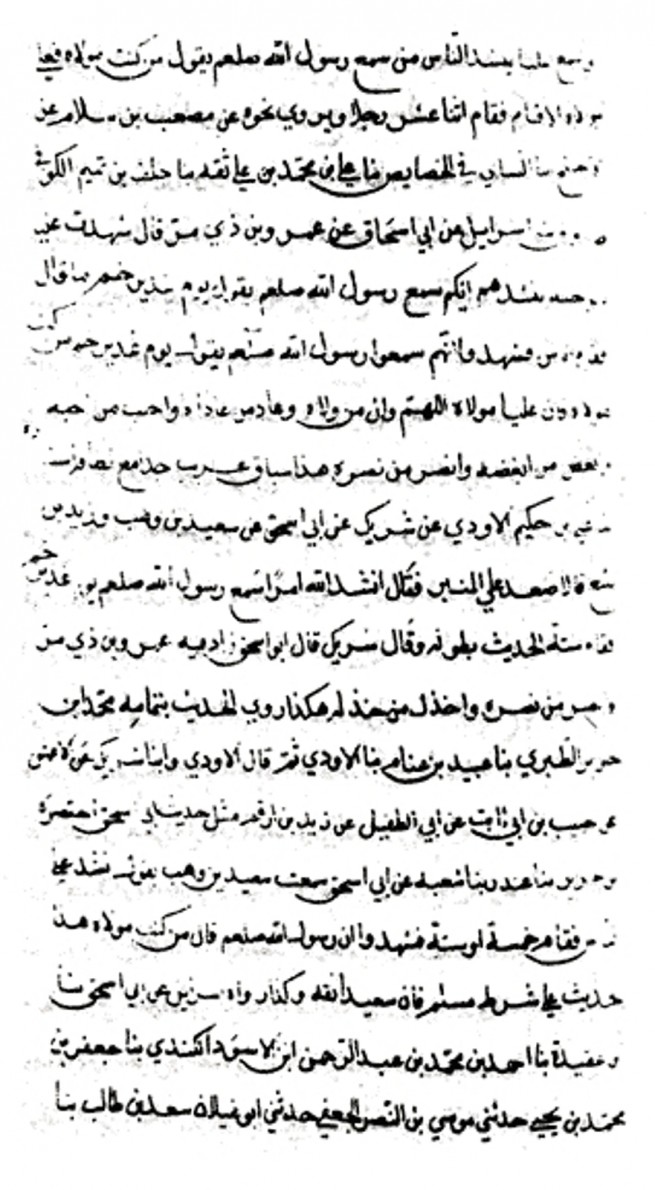 وسمع عليا ينشد الناس من سمع رسول الله صلعم يقول من كنت مولاه فعلي
مولاه الا قام فقام اثنا عشر رجلا ويروي نحوه عن مصعب بن سلام عن
النساي في الخصايص ثنا علي بن محمد بن علي ثقه ثنا خلف بن تميم الكوفي
اسرايل عن ابي اسحاق عن عمرو بن ذي مر قال شهدت عليا
ينشدهم ايكم سمع رسول الله صلعم يقول يوم غدير خم ما قال
فشهدوا انهم سمعوا رسول الله صلعم يقول يوم غدير خم من كنت
مولاه فان عليا مولاه اللهم وال من والاه وعاد من عاداه واحب من احبه
وابغض من ابغضه وانصر من نصره هذا سياق غريب
حكيم الاودي عن شريك عن ابي اسحق عن سعيد بن وهب وزيد بن
يثيع قالا صعد علي المنبر فقال انشد الله امرا سمع رسول الله صلعم يوم غدير خم
فقام ستة الحديث بطوله وقال شريك قال ابو اسحق زاد فيه عمرو بن ذي مر
وانصر من نصره واخذل من خذله هكذا روي الحديث بتمامه محمد ابن
جرير الطبري ثنا عبيد بن غنام ثنا الاودي ثم قال الاودي وانبانا شريك عن الاعمش
عن حبيب بن ابي ثابت عن ابي الطفيل عن زيد بن ارقم مثل حديث ابي اسحق اختصره
بن جرير ثنا غندر ثنا شعبه عن ابي اسحق سمعت سعيد بن وهب يقول نشد علي
الناس فقام خمسة او ستة فشهدوا ان رسول الله صلعم قال من كنت مولاه هذا
حديث علي شرط مسلم فان سعيدا ثقه وكذا رواه عن ابي اسحق ثنا
بن عقدة ثنا احمد بن محمد بن عبد الرحمن ابن الاسود الكندي ثنا جعفر بن
محمد بن يحيي حدثني موسي بن النضر الجعفي حدثني ابو غيلان سعد بن طالب ثنا